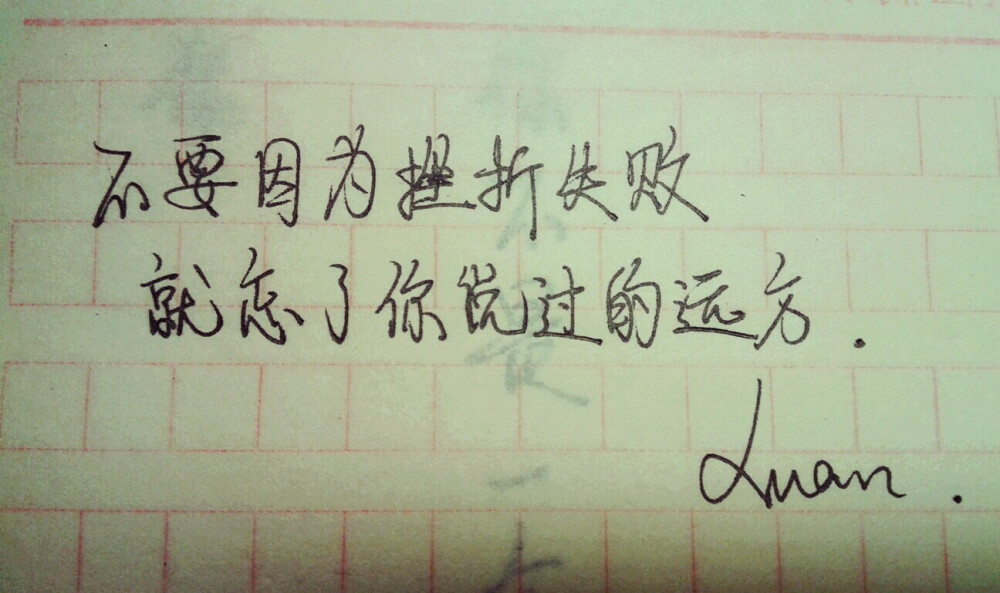 不要因为挫折失败
就忘了你说过的远方.